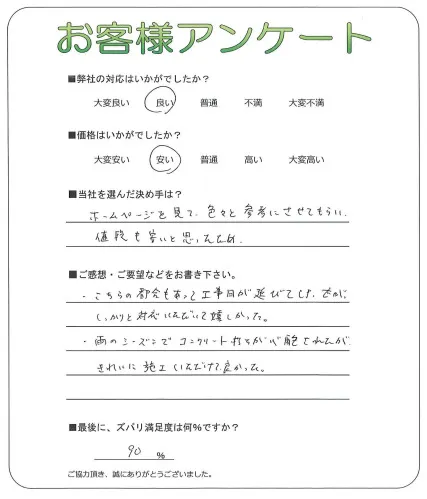 お客様アンケート
■弊社の対応はいかがでしたか？
大変良い 良い 普通 不満 大変不満
■価格はいかがでしたか？
大変安い 安い 普通 高い 大変高い
■当社を選んだ決め手は？
ホームページを見て、色々と参考にさせてもらい、
値段も安いと思ったため
■ご感想・ご要望などをお書き下さい。
・こちらの都合もあって工事日が延びてしまったが、
しっかりと対応いただいて嬉しかった。
・雨のシーズンでコンクリート打ちが心配されたが
きれいに施工いただけて良かった。
■最後に、ズバリ満足度は何%ですか？
90 %
ご協力頂き、誠にありがとうございました。